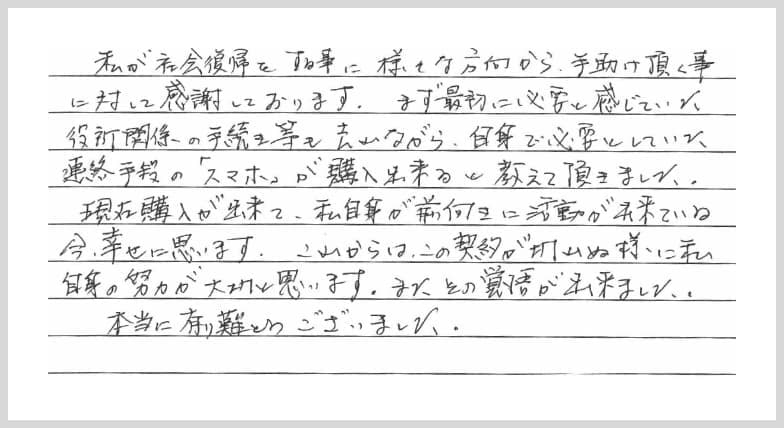 私が社会復帰をする事に様々な方向から、手助け頂く事
に対して感謝しております。まず最初に必要と感じていた、
役所関係の手続き等も去りながら、自身で必要としていた、
連絡手段の「スマホ」が購入出来ると教えて頂きました。
現在購入が出来て、私自身が前向きに活動が出来ている
今、幸せに思います。これからは、この契約が切れぬ様に私
自身の努力が大切と思います。また、その覚悟が出来ました。
本当に有り難とうございました。